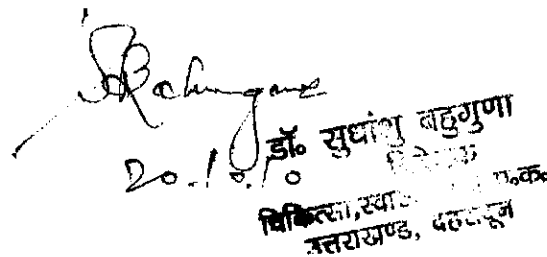 SBahuguna
20.10.10
डॉ० सुधांशु बहुगुणा
चिकित्सा, प०क०
उत्तराखण्ड, देहरादून